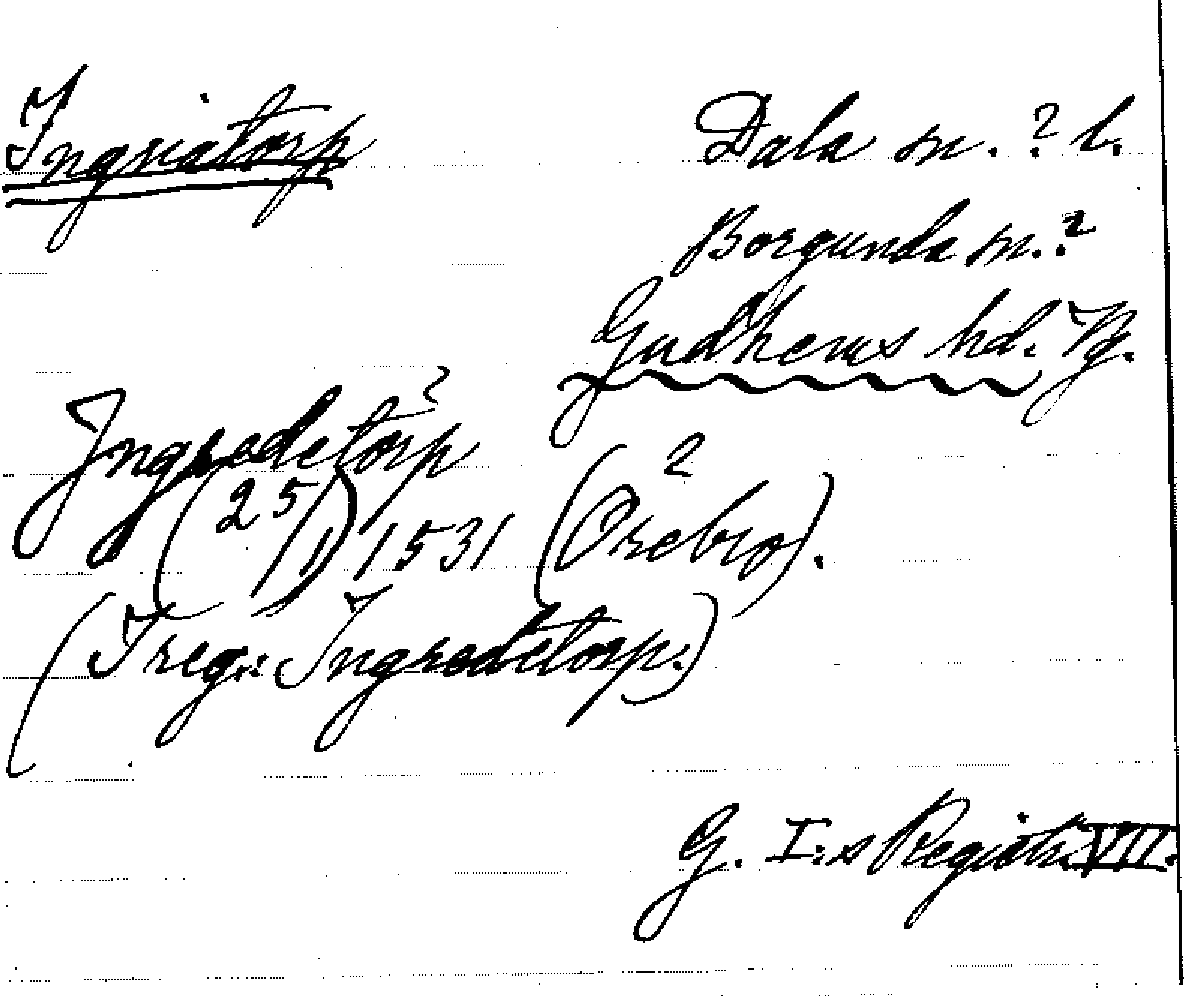 Ingriatorp Dala sn. ? l.
Borgunda sn. ?
Gudhems hd. Vg.
Ingredetorp ?
(25/1) 1531 (Örebro).
(I reg.: Ingredetorp.)
G. I:s Registr. VII.